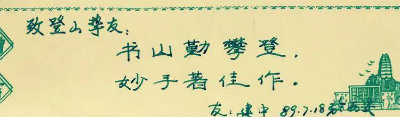 致登山挚友:
书山勤攀登,
妙手著佳作。
友:建中 89.7.18